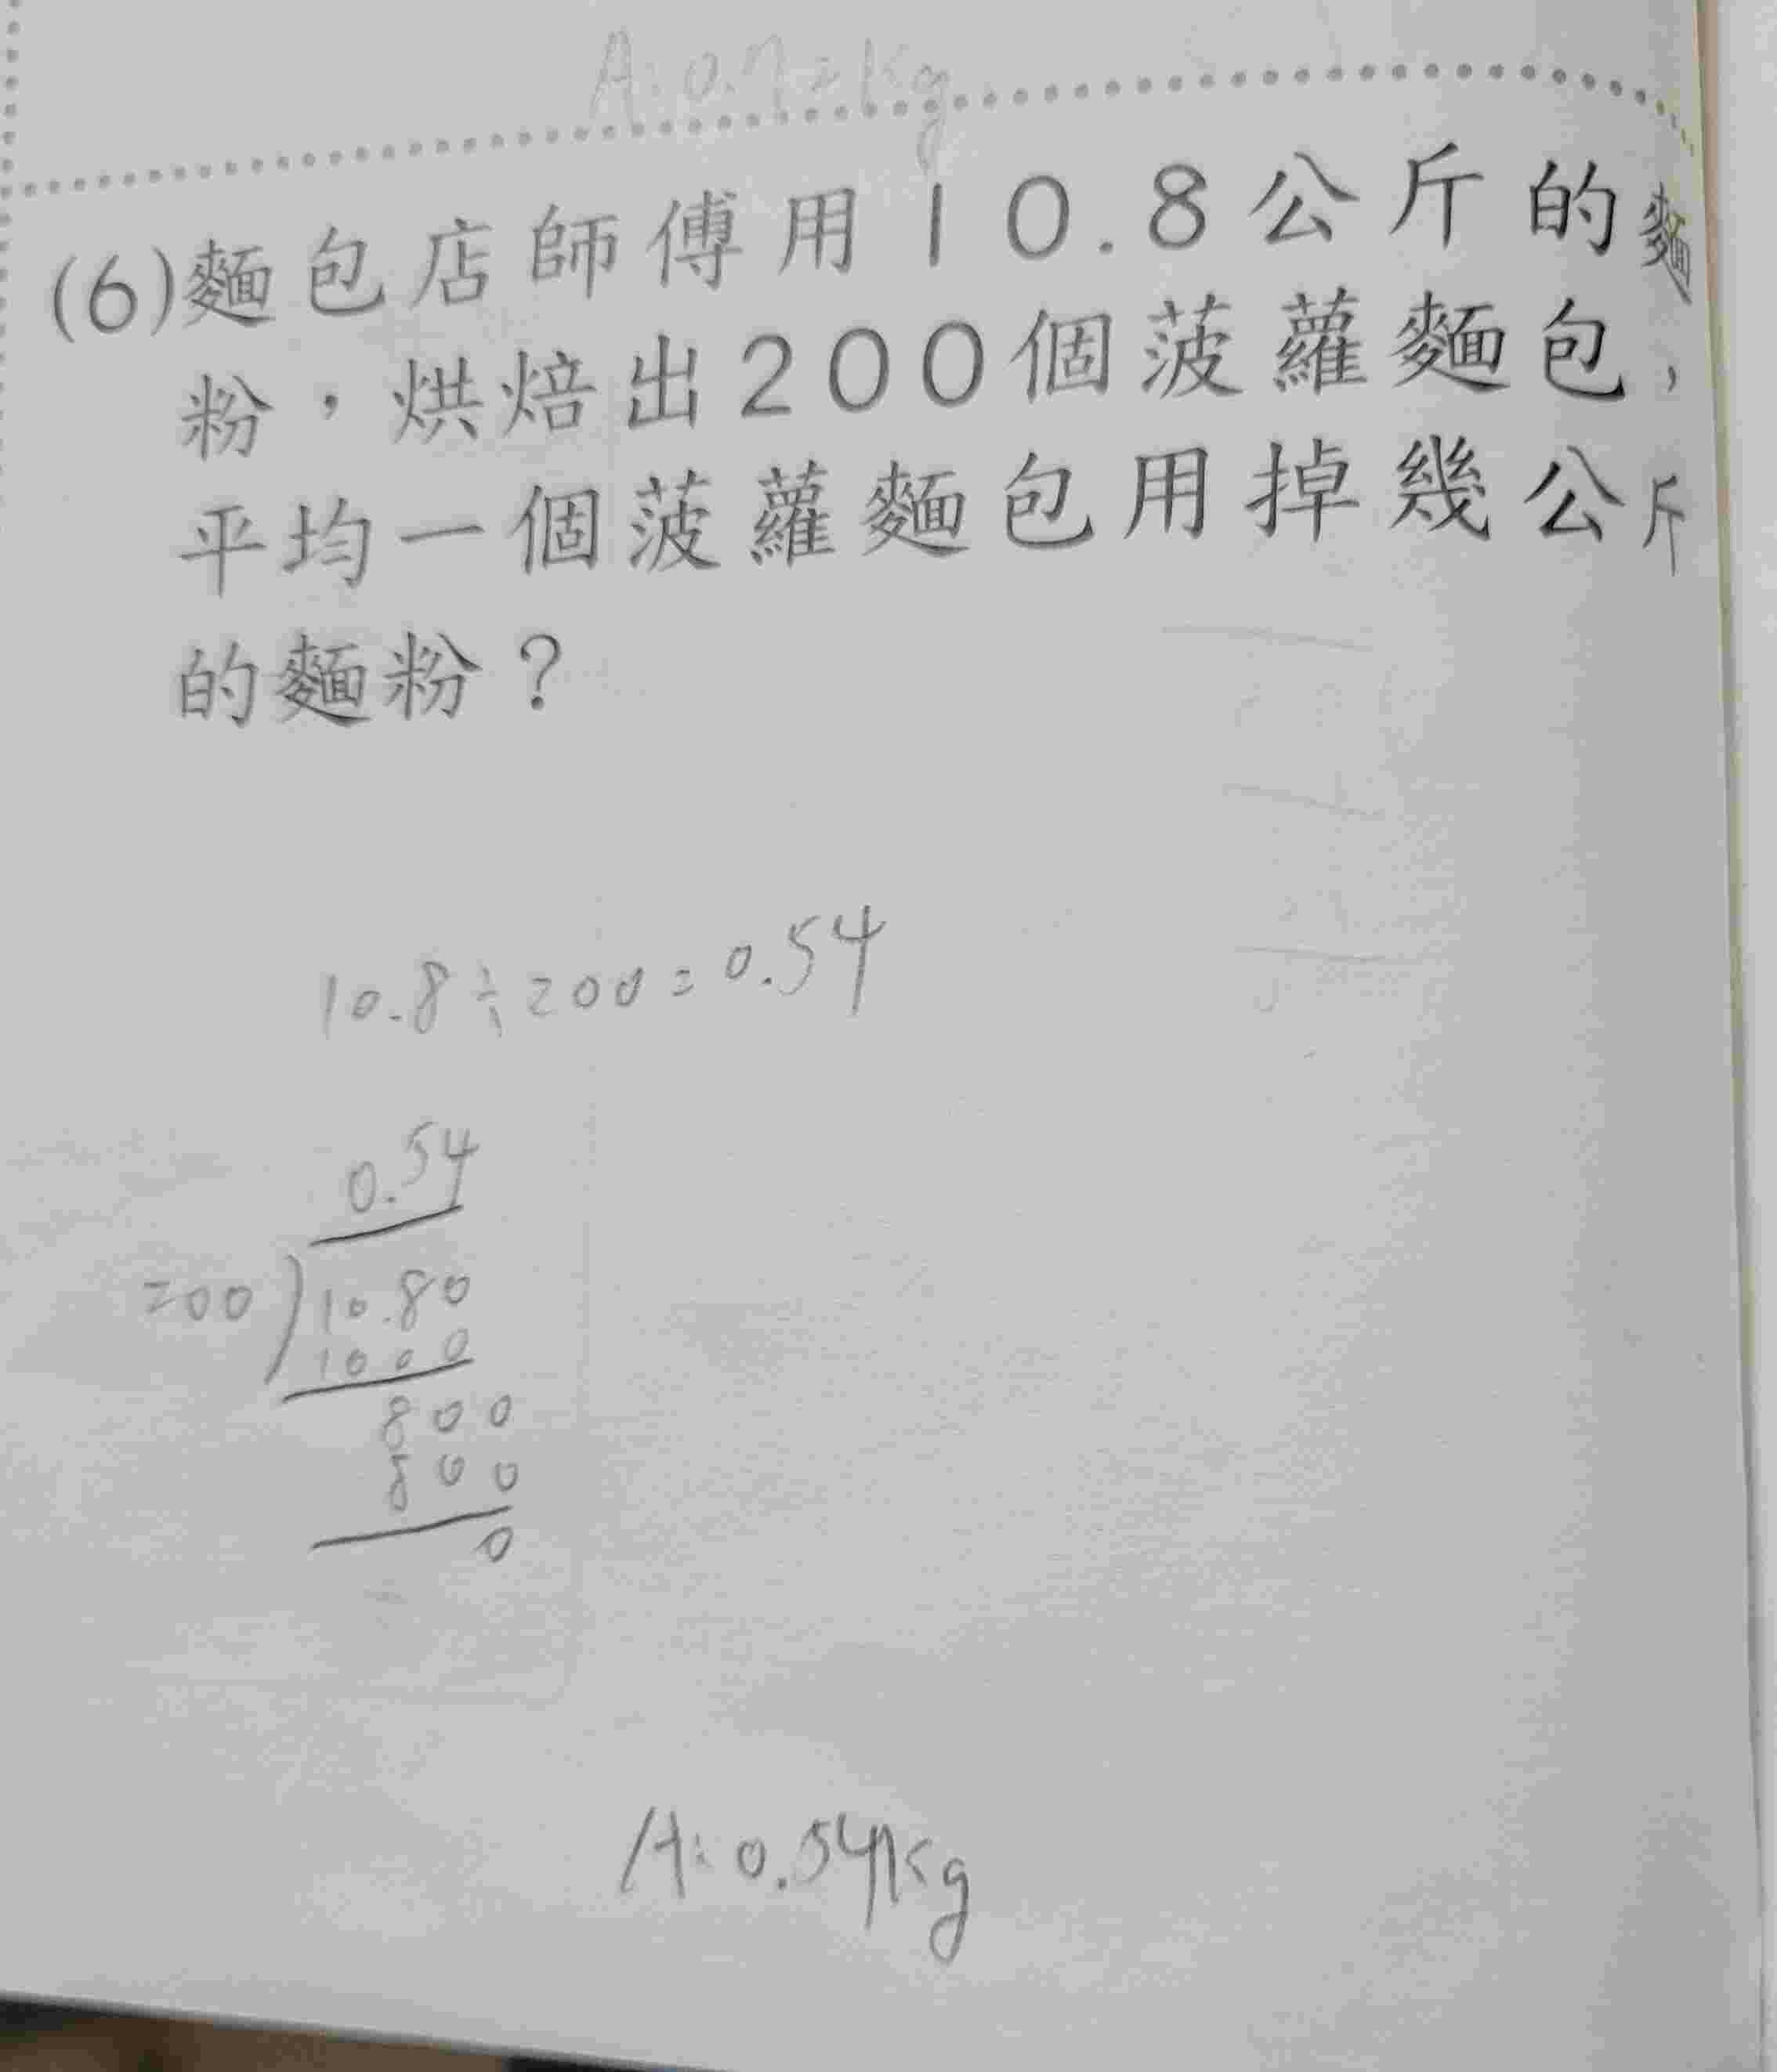 A:0.72kg
(6)麵包店師傅用10.8公斤的麵
粉，烘焙出200個菠蘿麵包，
平均一個菠蘿麵包用掉幾公斤
的麵粉？
10.8÷200=0.54
0.54
200)10.80
1000
800
800
0
A:0.54kg